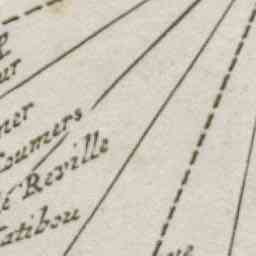 ur
ner
Coumers
de Reville
Tatibou
ue